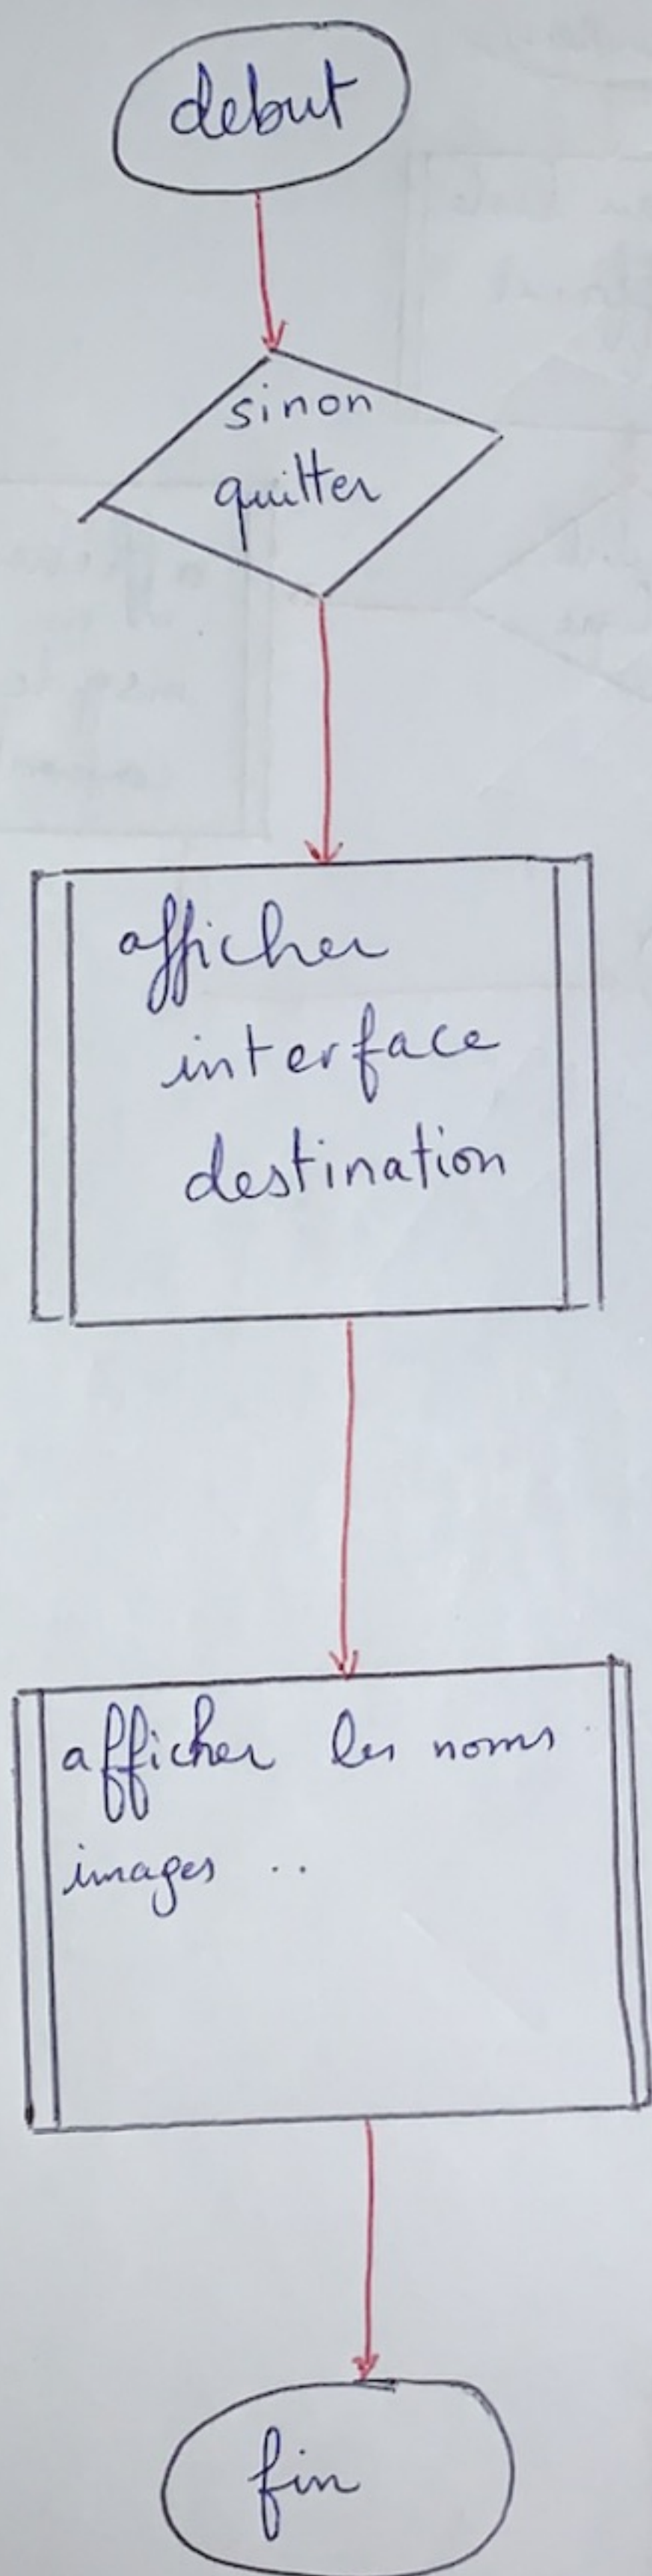 debut
sinon
quitter
afficher
interface
destination
afficher les noms
images ..
fin